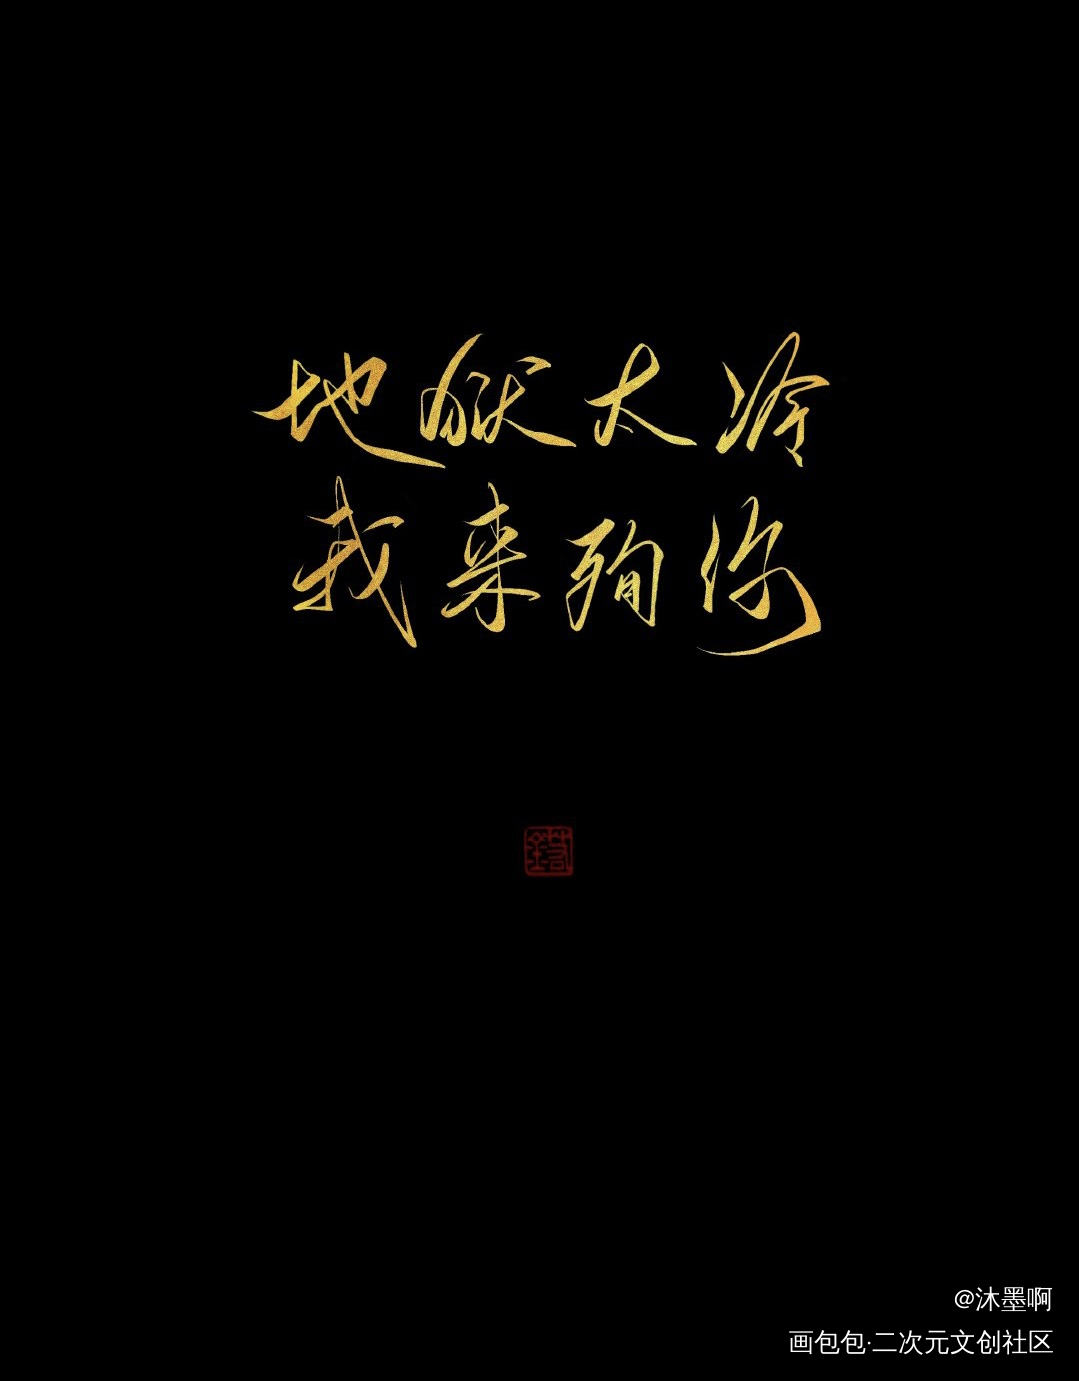 地狱太冷
我来殉你
@沐墨啊
画包包·二次元文创社区